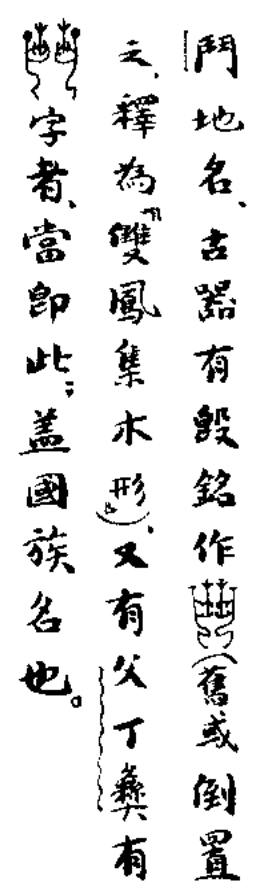 鬥地名、古器有𣪘銘作(舊或倒置
之、釋為『雙鳳集木形』)、又有父丁彝有
字者、當即此;蓋國族名也。